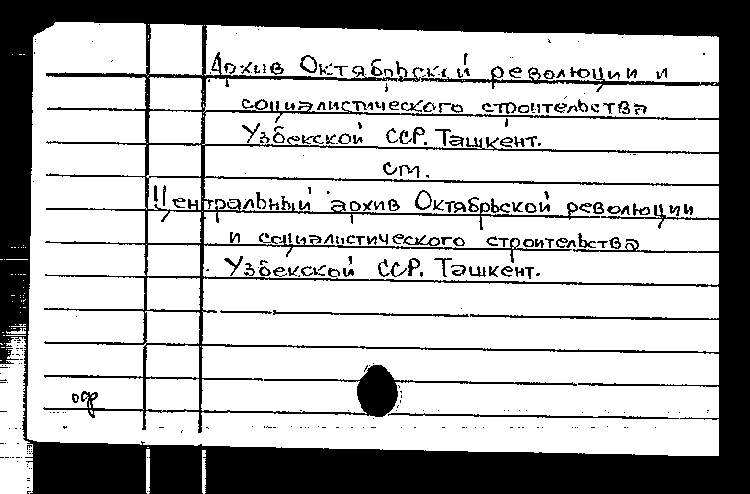 Архив Октябрьской революции и
социалистического строительства
Узбекской ССР. Ташкент.
см.
Центральный архив Октябрьской революции
и социалистического строительства
Узбекской ССР. Ташкент.